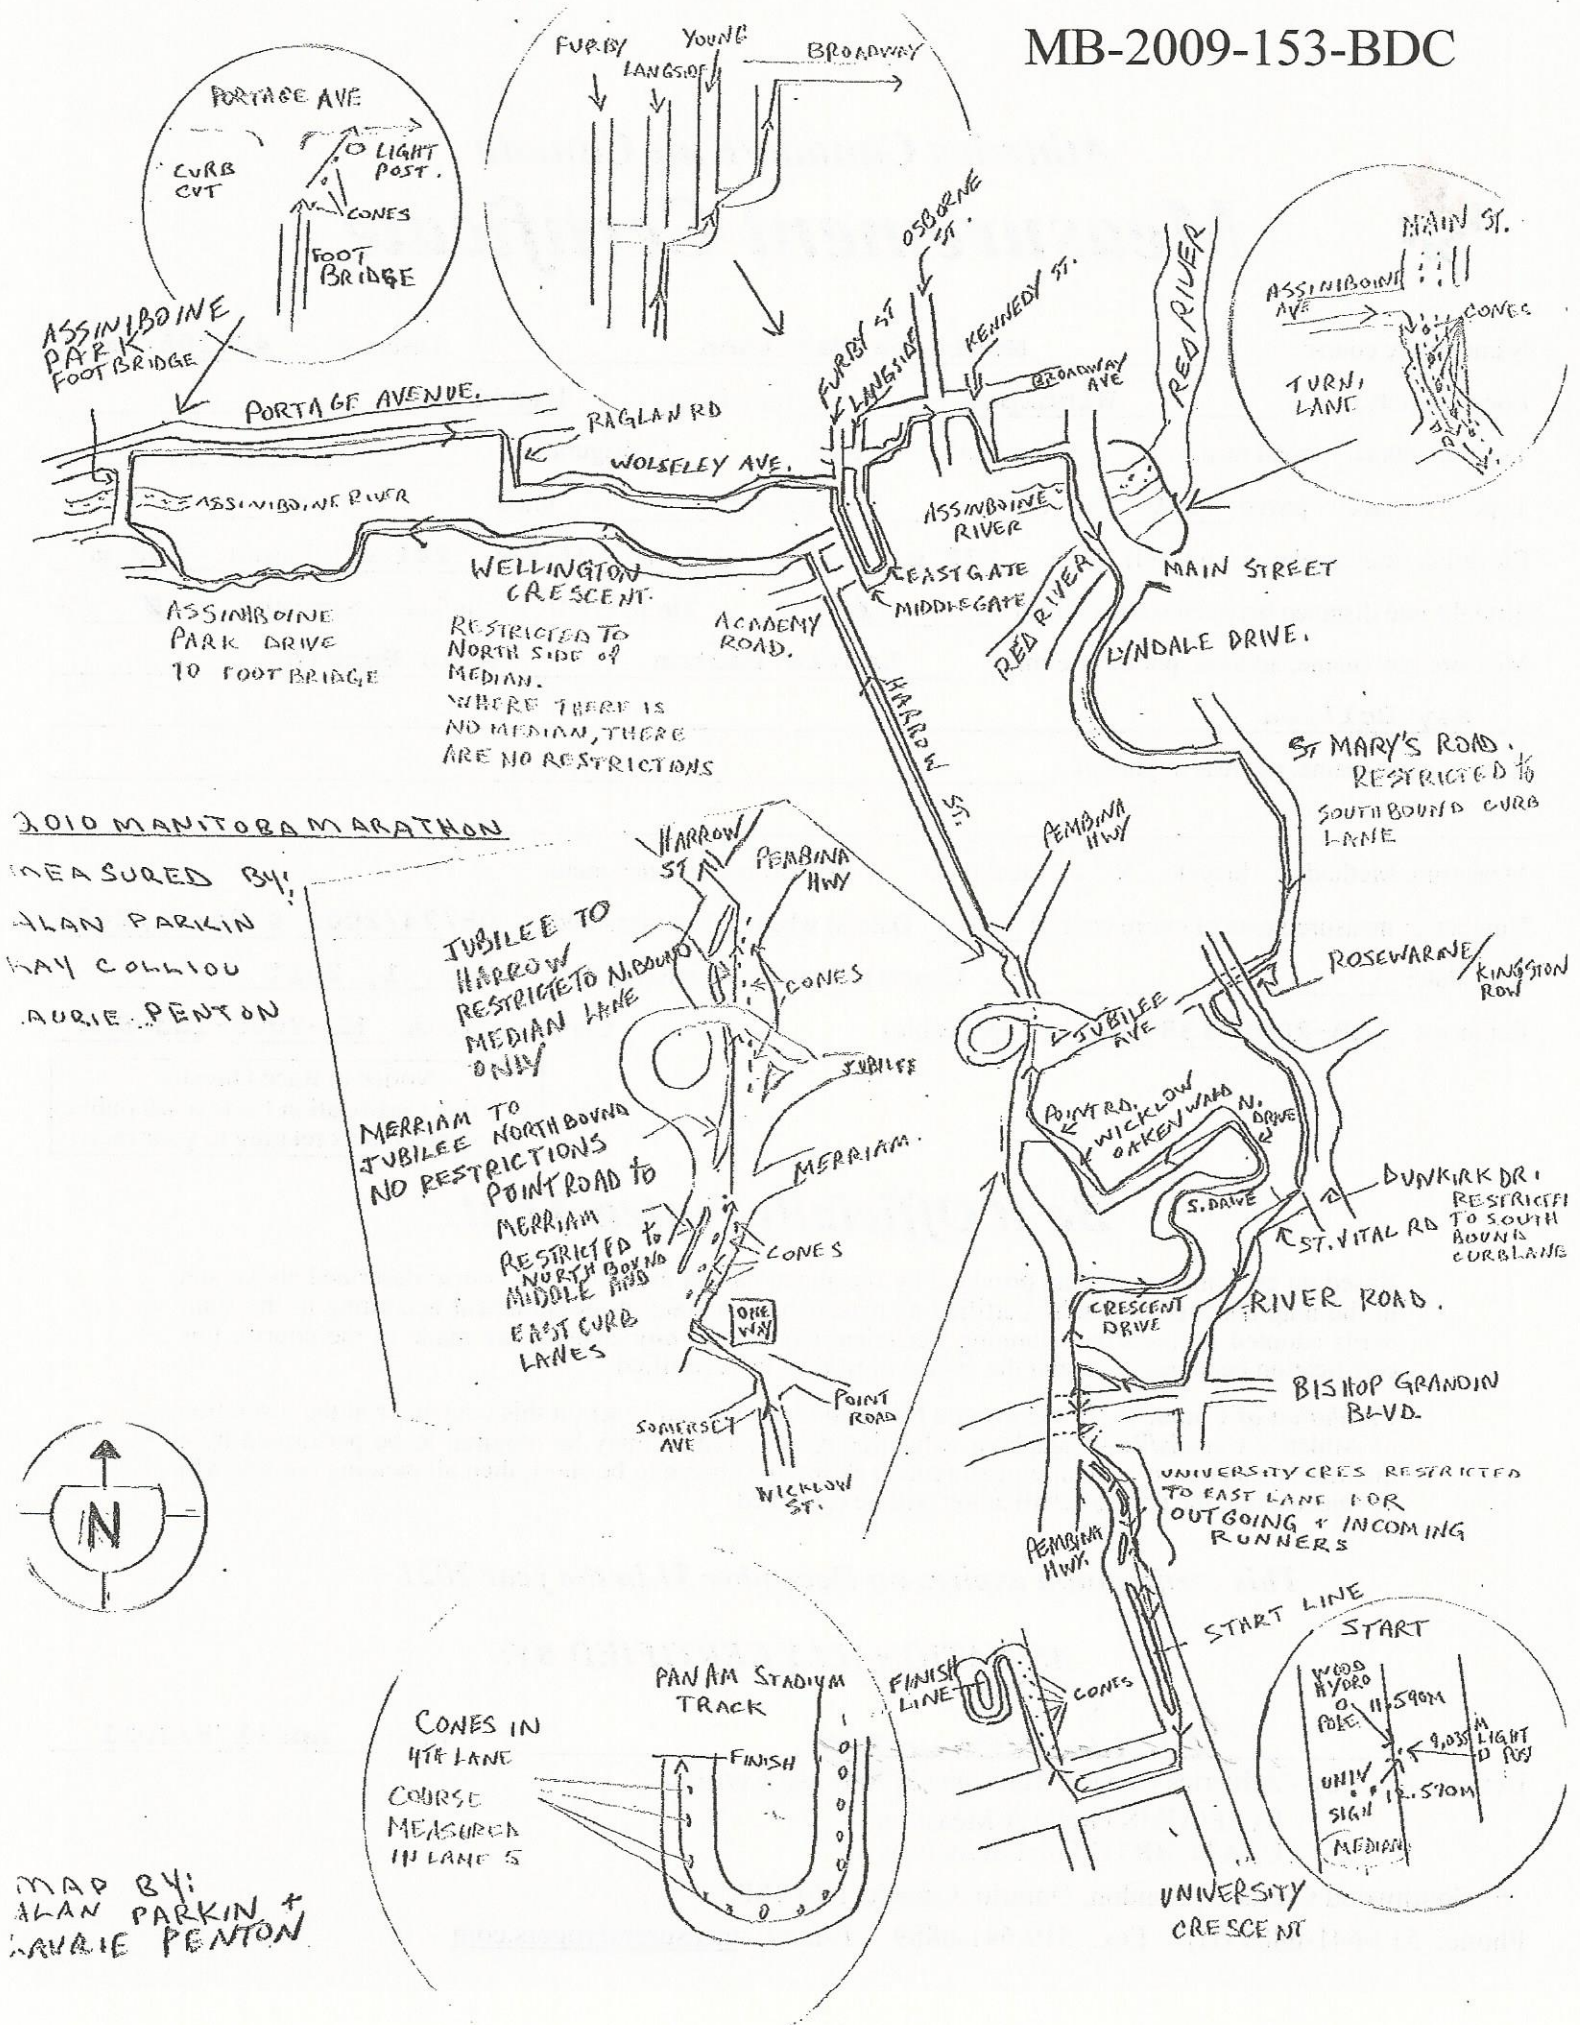 MB-2009-153-BDC
PORTAGE AVE
CURB
CUT
LIGHT
POST.
CONES
FOOT
BRIDGE
FURBY
LANGSIDE
YOUNG
BROADWAY
OSBORNE
ST.
KENNEDY ST.
RED RIVER
MAIN ST.
ASSINIBOINE
AVE
CONES
TURN,
LANE
ASSINIBOINE
PARK
FOOTBRIDGE
PORTAGE AVENUE.
RAGLAN RD
WOLSELEY AVE.
FURBY ST
LANGSIDE
BROADWAY
AVE
ASSINIBOINE RIVER
ASSINBOINE
RIVER
WELLINGTON
CRESCENT.
EASTGATE
MIDDLEGATE
RED RIVER
MAIN STREET
LYNDALE DRIVE.
ASSINIBOINE
PARK DRIVE
TO FOOTBRIDGE
RESTRICTED TO
NORTH SIDE of
MEDIAN.
WHERE THERE IS
NO MEDIAN, THERE
ARE NO RESTRICTIONS
ACADEMY
ROAD.
HARROW ST.
ST MARY'S ROAD.
RESTRICTED to
SOUTHBOUND CURB
LANE
2010 MANITOBA MARATHON
MEASURED BY:
ALAN PARKIN
KAY COLLIOU
LAURIE PENTON
HARROW
ST
PEMBINA
HWY
PEMBINA
HWY
JUBILEE TO
HARROW
RESTRICTE TO N.BOUND
MEDIAN LANE
ONLY
CONES
JUBILEE
MERRIAM TO
JUBILEE NORTHBOUND
NO RESTRICTIONS
MERRIAM.
POINT ROAD to
MERRIAM
RESTRICTED to
NORTH BOUND
MIDDLE AND
EAST CURB
LANES
CONES
ONE
WAY
POINT
ROAD
SOMERSET
AVE
WICKLOW
ST.
ROSEWARNE/
KINGSTON
ROW
JUBILEE
AVE
POINT RD.
WICKLOW
OAKENWALD
N.
DRIVE
S. DRIVE
DUNKIRK DR.
RESTRICTED
TO SOUTH
BOUND
CURBLANE
ST. VITAL RD
CRESCENT
DRIVE
RIVER ROAD.
BISHOP GRANDIN
BLVD.
UNIVERSITY CRES RESTRICTED
TO EAST LANE FOR
OUTGOING + INCOMING
RUNNERS
PEMBINA
HWY.
N
START LINE
FINISH
LINE
CONES
START
WOOD
HYDRO
POLE
11.590M
9,035 M
LIGHT
UNIV
SIGN
12.570M
MEDIAN
UNIVERSITY
CRESCENT
PAN AM STADIUM
TRACK
FINISH
CONES IN
4TH LANE
COURSE
MEASURED
IN LANE 5
MAP BY:
ALAN PARKIN +
LAURIE PENTON